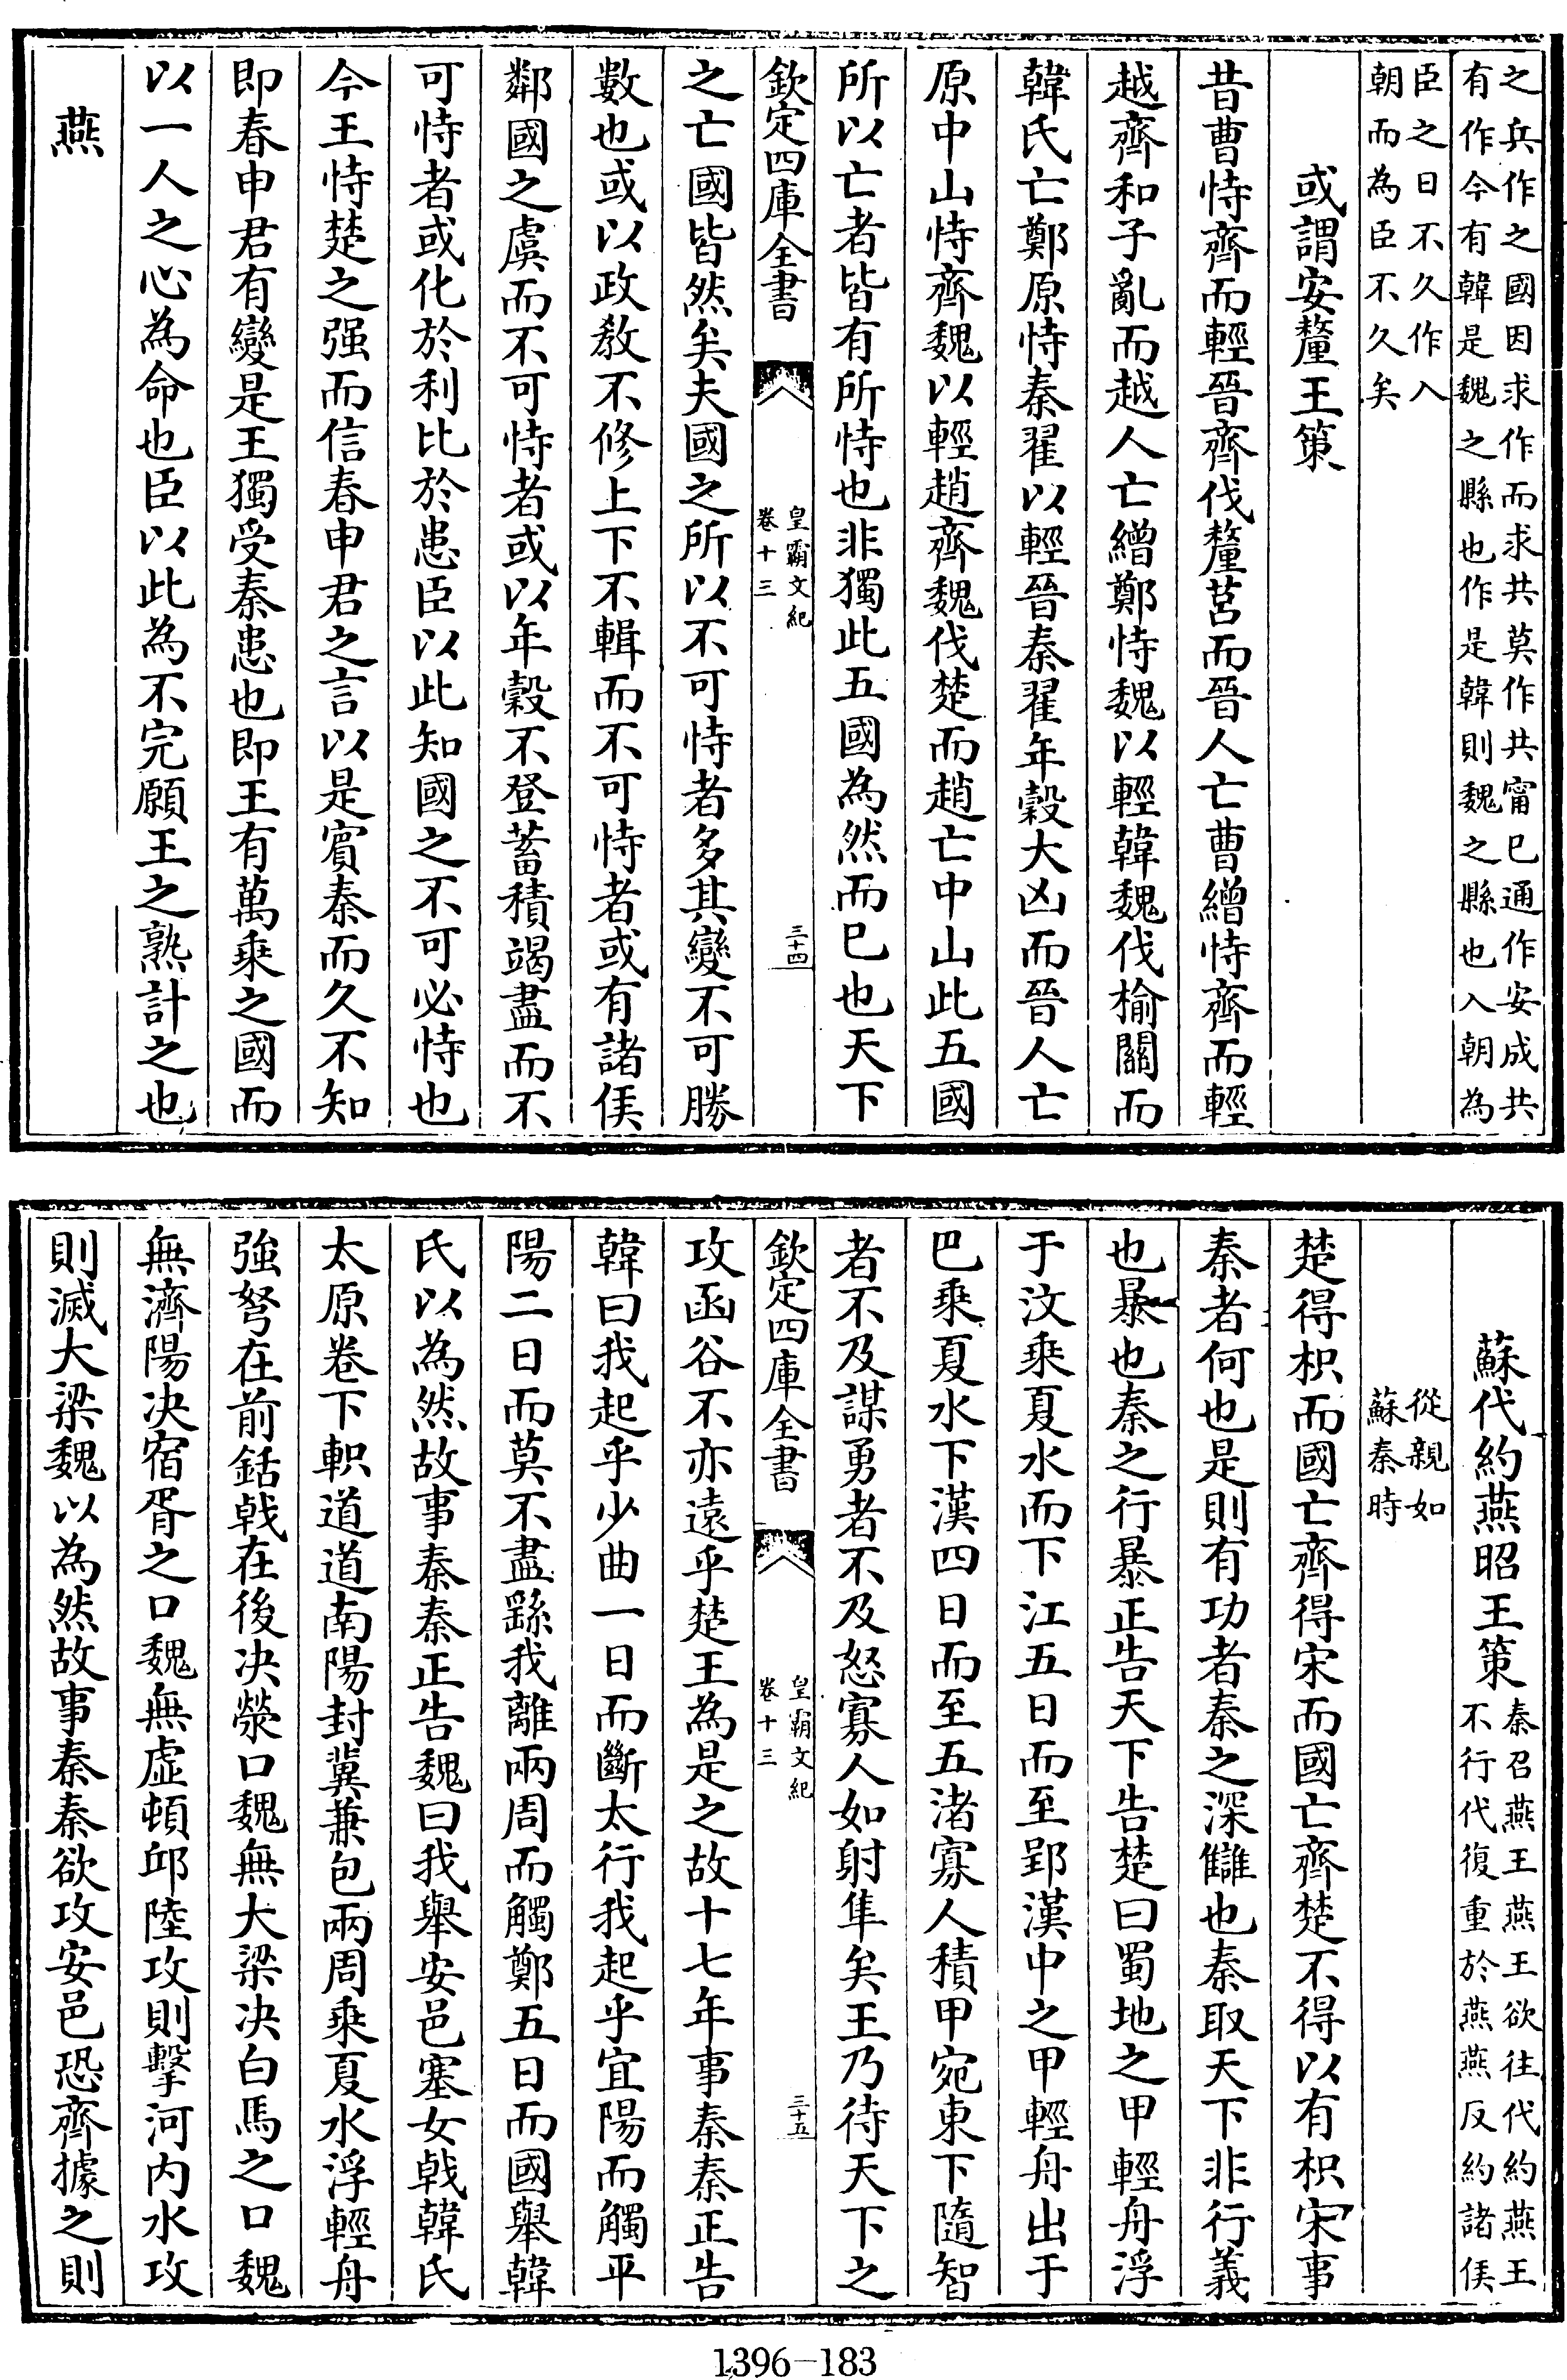 之兵作之國因求作而求共莫作共甯已通作安成共
有作今有韓是魏之縣也作是韓則魏之縣也入朝為
臣之日不久作入
朝而為臣不久矣
或謂安釐王策
昔曹恃齊而輕晉齊伐釐莒而晉人亡曹繒恃齊而輕
越齊和子亂而越人亡繒鄭恃魏以輕韓魏伐榆關而
韓氏亡鄭原恃秦翟以輕晉秦翟年穀大凶而晉人亡
原中山恃齊魏以輕趙齊魏伐楚而趙亡中山此五國
所以亡者皆有所恃也非獨此五國為然而已也天下
欽定四庫全書
皇霸文紀
卷十三
三十四
之亡國皆然矣夫國之所以不可恃者多其變不可勝
數也或以政教不修上下不輯而不可恃者或有諸侯
鄰國之虞而不可恃者或以年穀不登蓄積竭盡而不
可恃者或化於利比於患臣以此知國之不可必恃也
今王恃楚之强而信春申君之言以是賓秦而久不知
即春申君有變是王獨受秦患也即王有萬乘之國而
以一人之心為命也臣以此為不完願王之熟計之也
燕
蘇代約燕昭王策
秦召燕王燕王欲往代約燕王
不行代復重於燕燕反約諸侯
從親如
蘇秦時
楚得枳而國亡齊得宋而國亡齊楚不得以有枳宋事
秦者何也是則有功者秦之深讎也秦取天下非行義
也暴也秦之行暴正告天下告楚曰蜀地之甲輕舟浮
于汶乘夏水而下江五日而至郢漢中之甲輕舟出于
巴乘夏水下漢四日而至五渚寡人積甲宛東下隨智
者不及謀勇者不及怒寡人如射隼矣王乃待天下之
欽定四庫全書
皇霸文紀
卷十三
三十五
攻函谷不亦遠乎楚王為是之故十七年事秦秦正告
韓曰我起乎少曲一日而斷太行我起乎宜陽而觸平
陽二日而莫不盡繇我離兩周而觸鄭五日而國舉韓
氏以為然故事秦秦正告魏曰我舉安邑塞女戟韓氏
太原卷下軹道道南陽封冀兼包兩周乘夏水浮輕舟
強弩在前銛戟在後决滎口魏無大梁决白馬之口魏
無濟陽决宿胥之口魏無虛頓邱陸攻則擊河内水攻
則滅大梁魏以為然故事秦秦欲攻安邑恐齊據之則
1396-183